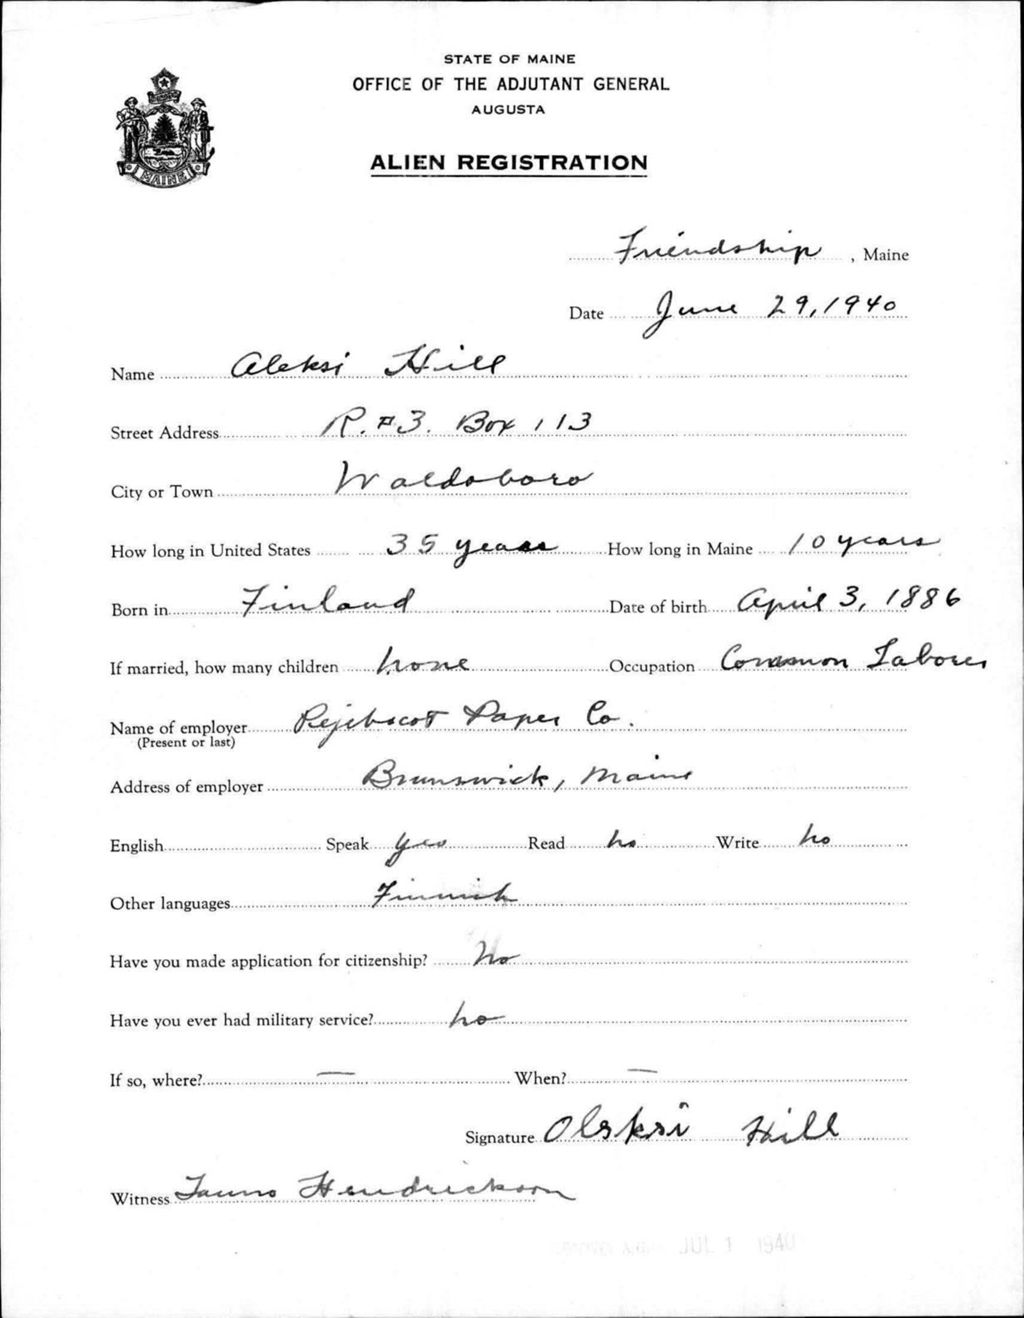 STATE OF MAINE
OFFICE OF THE ADJUTANT GENERAL
AUGUSTA
ALIEN REGISTRATION
MAINE
Friendship, Maine
Date June 29, 1940
Name Aleksi Hill
Street Address R. #3. Box 113
City or Town Waldoboro
How long in United States 35 years How long in Maine 10 years
Born in Finland Date of birth April 3, 1886
If married, how many children none Occupation Common Laborer
Name of employer Pejebscot Paper Co.
(Present or last)
Address of employer Brunswick, Maine
English Speak yes Read no Write no
Other languages Finnish
Have you made application for citizenship? No
Have you ever had military service? no
If so, where? — When? —
Signature Oleksi Hill
Witness Tauno Hendrickson
JUL 1 1940